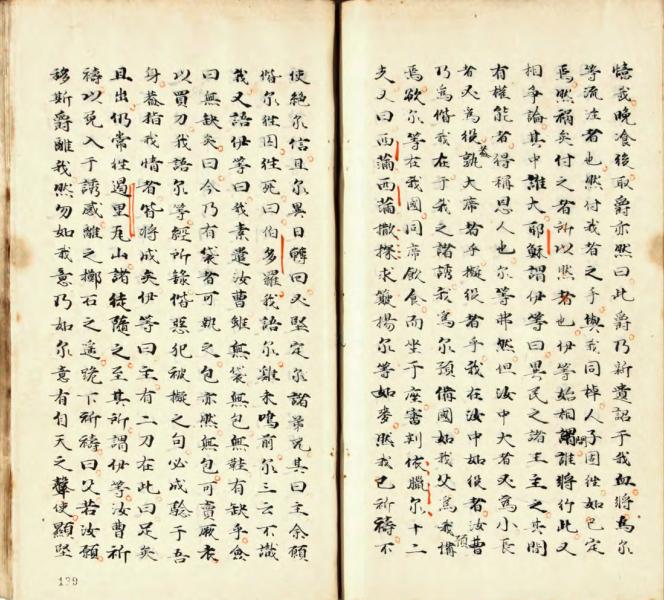 憶我晚飡後取爵亦然曰此爵乃新遺詔于我血將為尔
等流注者也然付我者之手與我同棹人子固徃如已定
焉然禍矣付之者所以然者也伊等始相問誰將行此又
相爭論其中誰大耶穌謂伊等曰異民之諸王主之其間
有權能者得稱恩人也尔等弗然但汝中大者又為小長
者又為役蓋孰大席者乎擬役者乎我在汝中如役者汝曹
乃為偕我在于我之諸誘我為尔預備國如我父為我備
焉欲尔等在我國同席飲食而坐于座審判依臘尔十二
支又曰西蒲西蒲撒探求簸揚尔等如麥然我已祈禱不
使絕尔信且尔異日轉回又堅定尔諸弟兄其曰主余願
偕尔徃囹徃死曰伯多羅我語尔雞未鳴前尔三云不識
我又語伊等曰我素遣汝曹雖無袋無包無鞋有缺乎僉
曰無缺矣曰今乃有袋者可執之包亦然無包可賣厥衣
以買刀我語尔等經所錄偕惡犯被擬之句必成驗于吾
身蓋指我情者皆將成矣伊等曰主有二刀在此曰足矣
且出仍常徃遏里瓦山諸徒隨之至其所謂伊等汝曹祈
禱以免入于誘感離之擲石之遙跪下祈禱曰父若汝願
移斯爵離我然勿如我意乃如尔意有自天之聲使顯堅
139